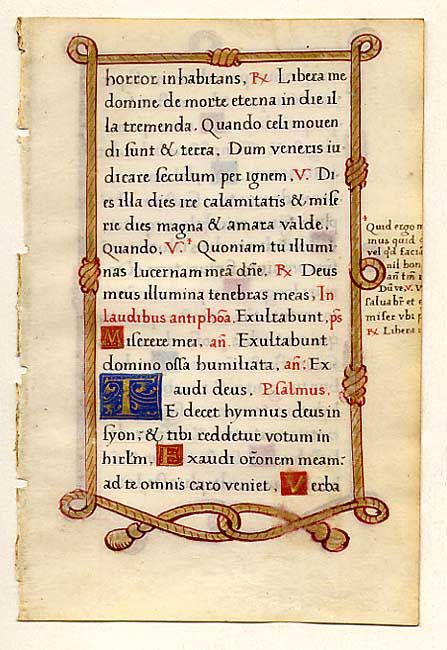 horror inhabitans, ℞ Libera me
domine de morte eterna in die il
la tremenda. Quando celi mouen
di sunt & terra. Dum veneris iu
dicare seculum per ignem. V. Di
es illa dies ire calamitatis & mise
rie dies magna & amara valde.
Quando. V. Quoniam tu illumi
nas lucernam meā dñe. ℞ Deus
meus illumina tenebras meas, In
laudibus antiphōa. Exultabunt, ps
Miserere mei. añ. Exultabunt
domino ossa humiliata, añ. Ex
audi deus. Psalmus.
TE decet hymnus deus in
syon, & tibi reddetur votum in
hirlm. Exaudi orōnem meam:
ad te omnis caro veniet. Verba
Quid ergo m
mus quid
vel qd facia
nil bon
Dū ve. V.
saluabr et e
miser vbi
℞ Libera